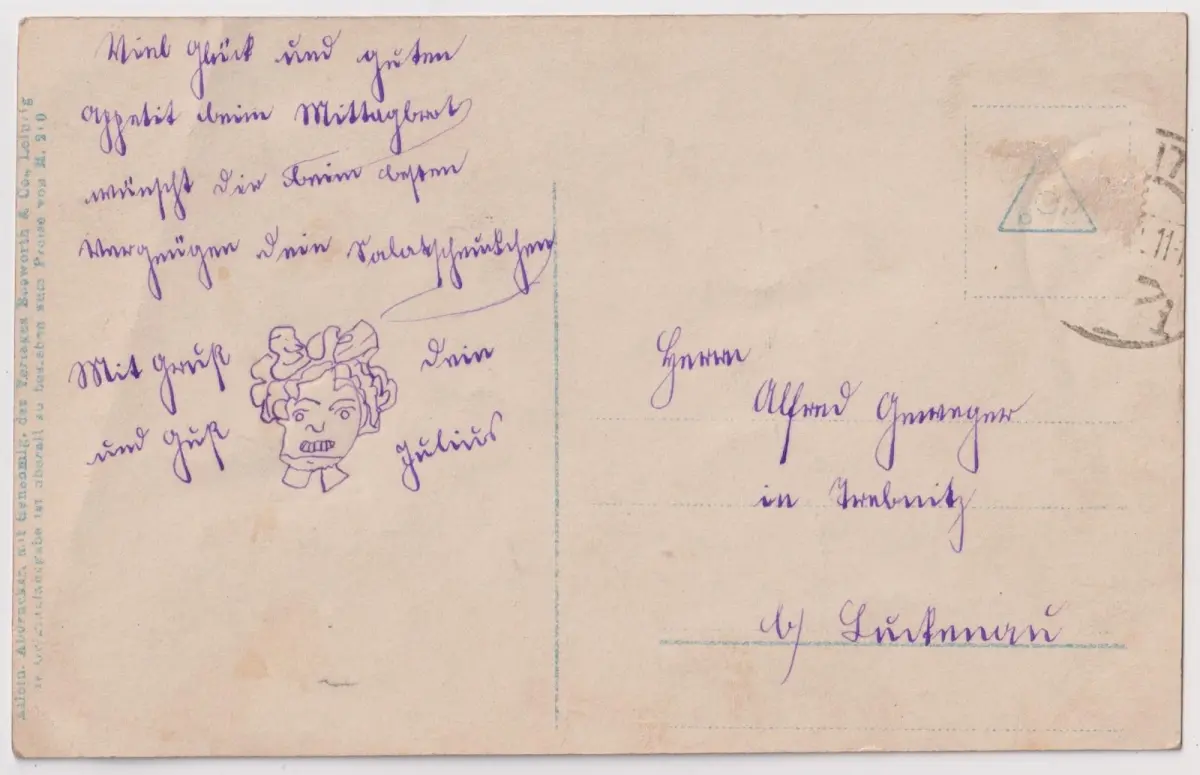 Viel Glück und guten
Appetit beim Mittagbrot
wünscht Dir beim besten
Vergnügen Dein
Mit Gruß Dein
und Guß Julius
Herrn
Alfred Geweger
in Trebnitz
b/ Luckenau
Allein. Abdrucker, mit Genehmig. des Verlages Bosworth & Co., Leipzig
ist überall zu beziehen zum Preise von M. 2.0
17
11-1